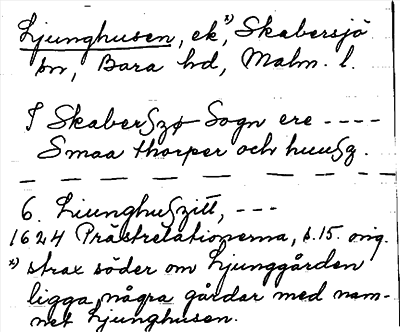 Ljunghusen, ek x), Skabersjö
sn, Bara hd, Malm. l.
I Skaberszø Sogn ere ----
Smaa thorper och huusz.
6. Liunghuszitt, ---
1624 Prästrelationerna, s. 15. orig.
x) strax söder om Ljunggården
ligga några gårdar med nam-
net Ljunghusen.